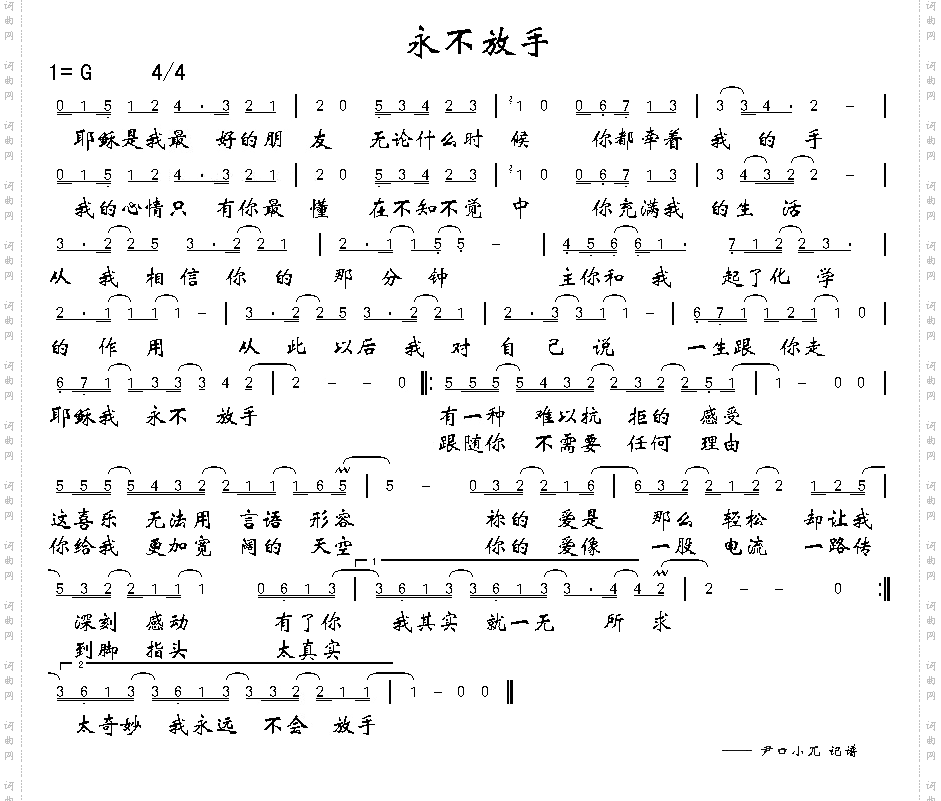 永不放手
1=G 4/4
0 1 5 1 2 4 · 3 2 1 | 2 0 5 3 4 2 3 | 1 0 0 6 7 1 3 | 3 3 4 · 2 – |
耶稣是我最 好的朋 友 无论什么时 候 你都牵着 我 的 手
0 1 5 1 2 4 · 3 2 1 | 2 0 5 3 4 2 3 | 1 0 0 6 7 1 3 | 3 4 3 2 2 – |
我的心情只 有你最 懂 在不知不觉 中 你充满我 的生 活
3 · 2 2 5 3 · 2 2 1 | 2 · 1 1 5 5 – | 4 5 6 6 1 · 7 1 2 2 3 · |
从 我 相 信 你 的 那 分 钟 主你和 我 起了化 学
2 · 1 1 1 1 – | 3 · 2 2 5 3 · 2 2 1 | 2 · 3 3 1 1 – | 6 7 1 1 2 1 1 0 |
的 作 用 从 此 以后 我 对 自 己 说 一生跟 你走
6 7 1 1 3 3 3 4 2 | 2 – – 0 ‖: 5 5 5 5 4 3 2 2 3 2 2 5 1 | 1 – 0 0 |
耶稣我 永不 放手 有一种 难以抗 拒的 感受
跟随你 不需要 任何 理由
5 5 5 5 4 3 2 2 1 1 1 6 5 | 5 – 0 3 2 2 1 6 | 6 3 2 2 1 2 2 1 2 5 |
这喜乐 无法用 言语 形容 祢的 爱是 那么 轻松 却让我
你给我 更加宽 阔的 天空 你的 爱像 一股 电流 一路传
5 3 2 2 1 1 1 0 6 1 3 | 3 6 1 3 3 6 1 3 3 · 4 4 2 | 2 – – 0 :‖
1
深刻 感动 有了你 我其实 就一无 所 求
到脚 指头 太真实
2
3 6 1 3 3 6 1 3 3 3 2 2 1 1 | 1 – 0 0 ‖
太奇妙 我永远 不会 放手
—— 尹口小兀 记谱
词曲网